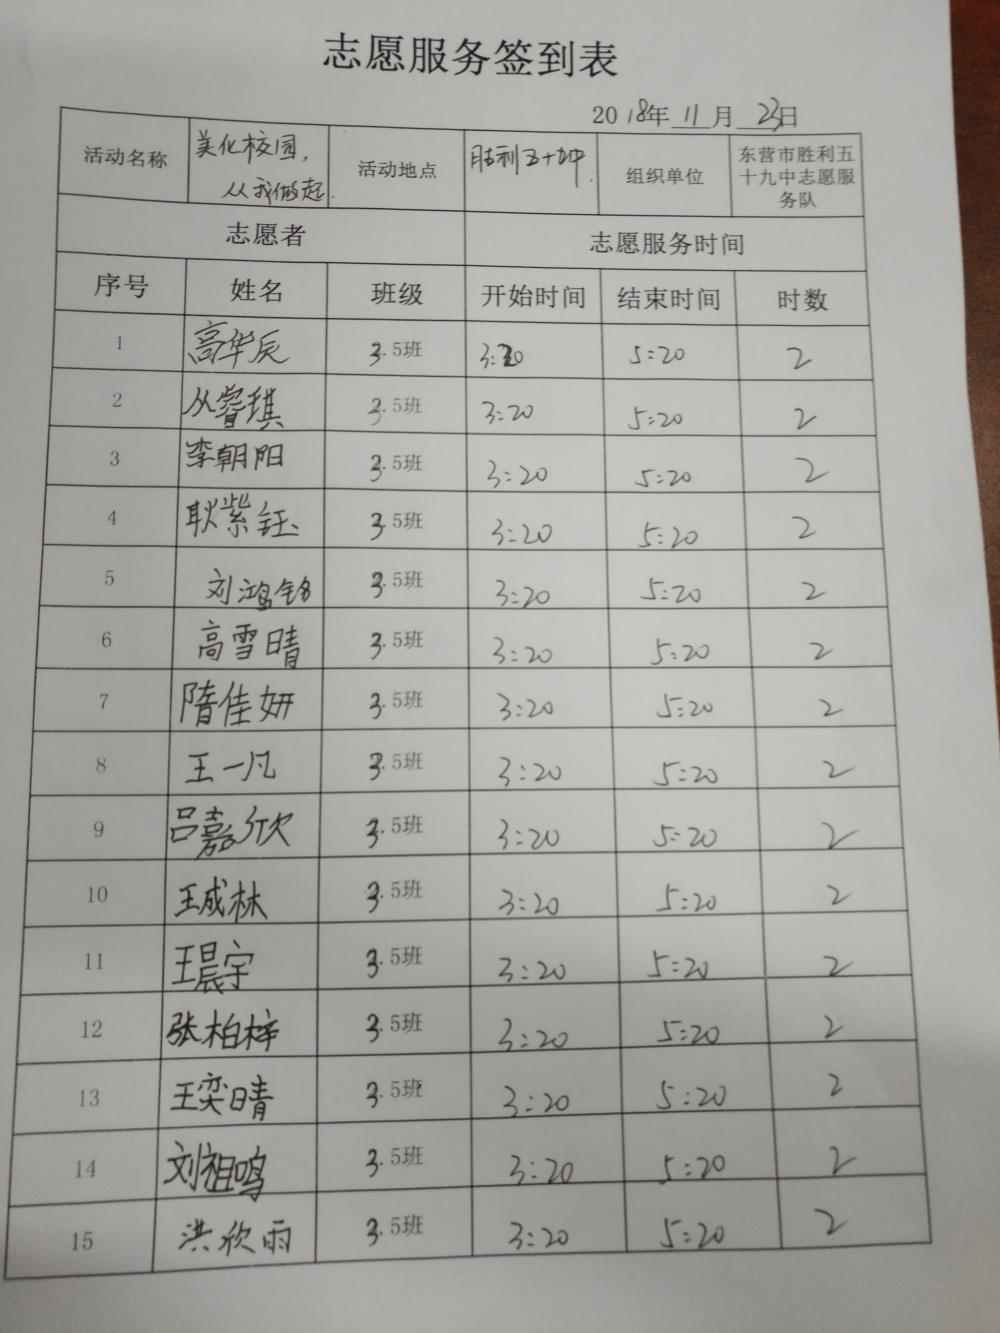 志愿服务签到表
2018年11月23日
活动名称 美化校园，从我做起. 活动地点 胜利五十九中. 组织单位 东营市胜利五十九中志愿服务队
志愿者 志愿服务时间
序号 姓名 班级 开始时间 结束时间 时数
1 高华辰 3.5班 3:20 5:20 2
2 从睿琪 3.5班 3:20 5:20 2
3 李朝阳 3.5班 3:20 5:20 2
4 耿紫钰 3.5班 3:20 5:20 2
5 刘鸿铭 3.5班 3:20 5:20 2
6 高雪晴 3.5班 3:20 5:20 2
7 隋佳妍 3.5班 3:20 5:20 2
8 王一凡 3.5班 3:20 5:20 2
9 吕嘉欣 3.5班 3:20 5:20 2
10 王成林 3.5班 3:20 5:20 2
11 王晨宇 3.5班 3:20 5:20 2
12 张柏梓 3.5班 3:20 5:20 2
13 王奕晴 3.5班 3:20 5:20 2
14 刘祖鸣 3.5班 3:20 5:20 2
15 洪欣雨 3.5班 3:20 5:20 2